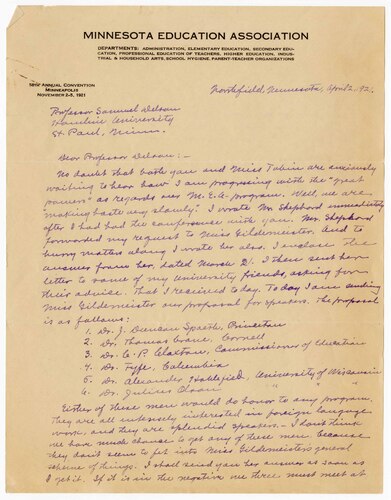 MINNESOTA EDUCATION ASSOCIATION
DEPARTMENTS: ADMINISTRATION, ELEMENTARY EDUCATION, SECONDARY EDU-
CATION, PROFESSIONAL EDUCATION OF TEACHERS, HIGHER EDUCATION, INDUS-
TRIAL & HOUSEHOLD ARTS, SCHOOL HYGIENE, PARENT-TEACHER ORGANIZATIONS
ANNUAL CONVENTION
MINNEAPOLIS
NOVEMBER 2-5, 1921
Northfield, Minnesota, April 2, 1921
Professor Samuel
Hamline University
St. Paul, Minn.
Dear Professor :-
No doubt that both you and Miss Tobin are anxiously
waiting to hear how I am progressing with the "great
powers" as regards our M.E.A. program. Well, we are
"making haste very slowly." I wrote Mr. Shephord immediately
after I had had the conference with you. Mr. Shephord
forwarded my request to Miss Gildemeister. And to
hurry matters along I wrote her also. I enclose the
answer from her, dated March 21. I then sent her
letter to some of my University friends, asking for
their advise. That I received to day. To day I am sending
Miss Gildemeister our proposal for speakers. The proposal
is as follows:
1. Dr. J. Duncan Spaeth, Princeton
2. Dr. Thomas Crane, Cornell
3. Dr. C. P. Claxton, Commissioner of Education
4. Dr. Fyfe, Columbia
5. Dr. Alexander Hohlfeld, University of Wisconsin
6. Dr. Julius Olson " " "
Either of these men would do honor to any program.
They are all intensely interested in foreign language
work, and they are splendid speakers. I don't think
we have much chance to get any of these men, because
they don't seem to fit into Miss Gildemeister's general
scheme of things. I shall send you her answer as soon as
I get it. If it is in the negative we three must meet at